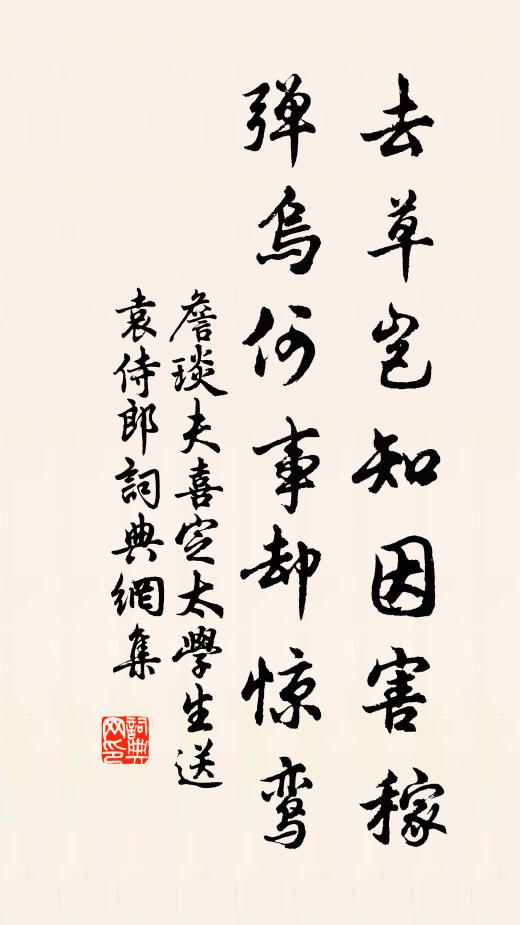 去草岂知因害稼
弹乌何事却惊鸾
詹琰夫喜定太学生送
袁侍郎詞典網集
詞典
网印